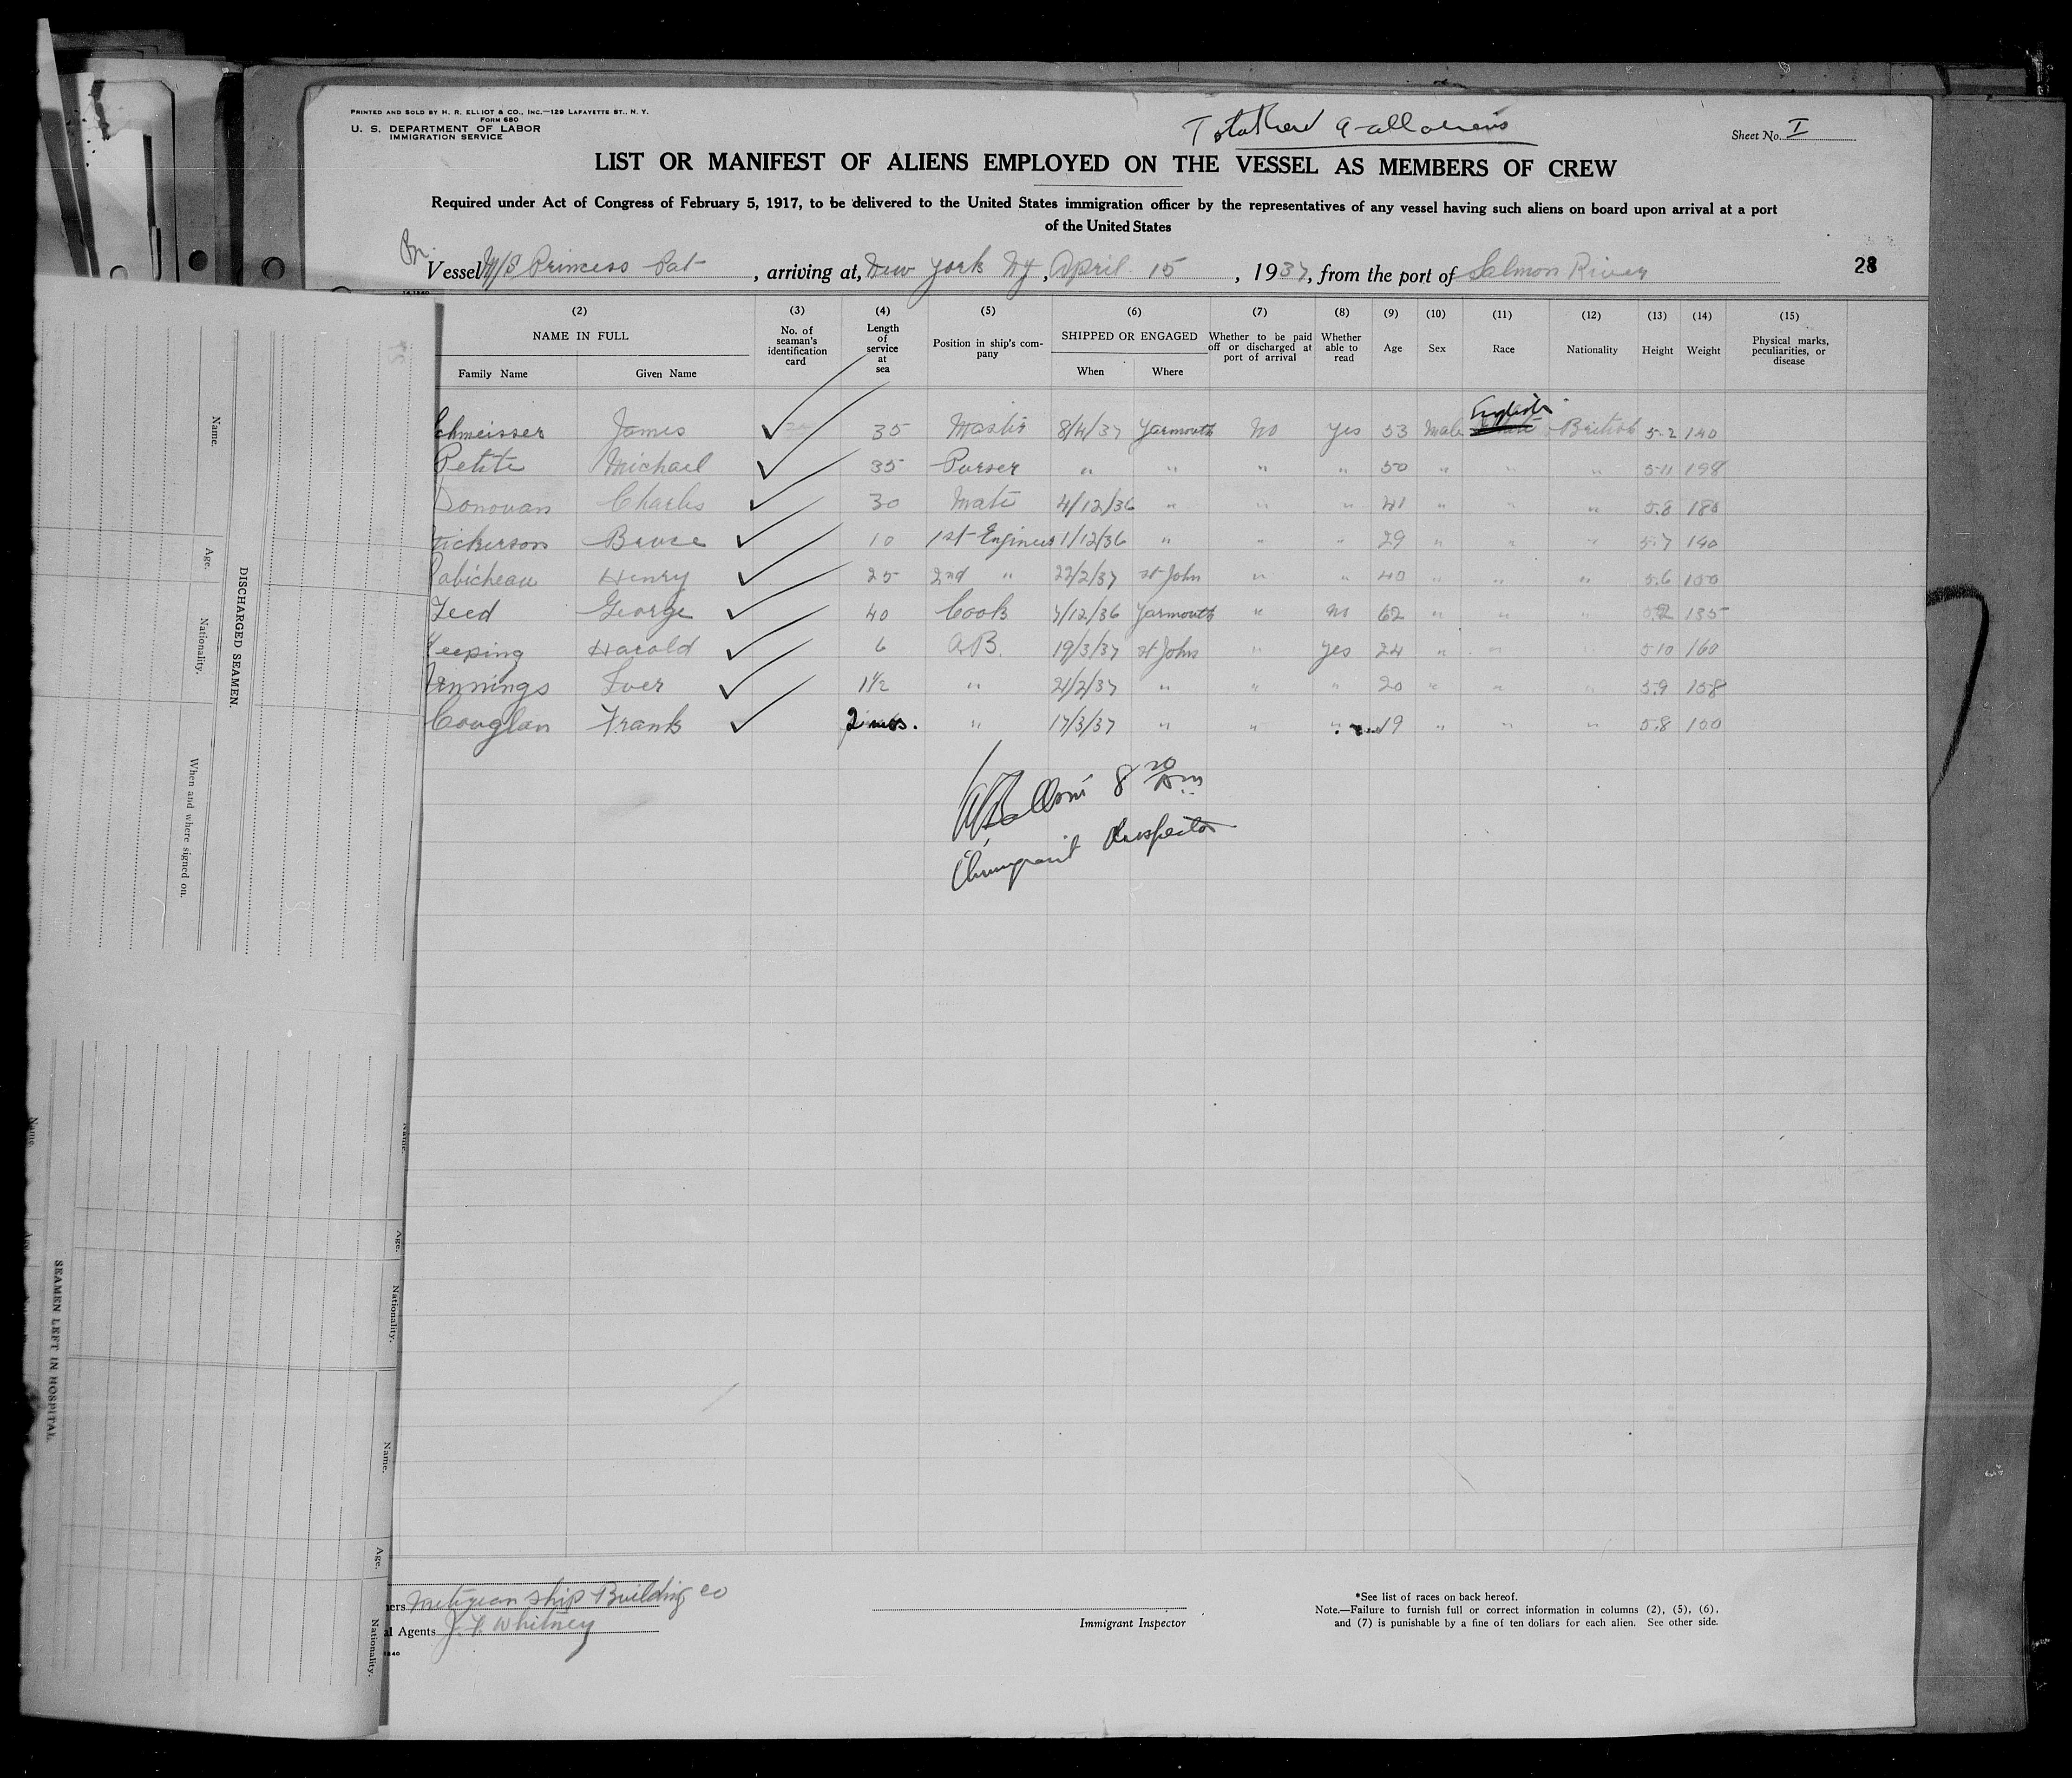 PRINTED AND SOLD BY H. R. ELLIOT & CO., INC.—129 LAFAYETTE ST., N. Y.
FORM 680
U. S. DEPARTMENT OF LABOR
IMMIGRATION SERVICE
Total Crew 9 - all aliens
Sheet No. I
LIST OR MANIFEST OF ALIENS EMPLOYED ON THE VESSEL AS MEMBERS OF CREW
Required under Act of Congress of February 5, 1917, to be delivered to the United States immigration officer by the representatives of any vessel having such aliens on board upon arrival at a port
of the United States
Br. Vessel M/S Princess Pat, arriving at, New York NY, April 15, 1937, from the port of Salmon River
28
(2) NAME IN FULL Family Name Given Name (3) No. of seaman's identification card (4) Length of service at sea (5) Position in ship's company (6) SHIPPED OR ENGAGED When Where (7) Whether to be paid off or discharged at port of arrival (8) Whether able to read (9) Age (10) Sex (11) Race (12) Nationality (13) Height (14) Weight (15) Physical marks, peculiarities, or disease
Schmeisser James 35 Master 8/4/37 Yarmouth No Yes 53 Male English British 5-2 140
Petite Michael 35 Purser " " " " 50 " " " 5-11 198
Donovan Charles 30 Mate 4/12/36 " " " 41 " " " 5.8 180
Nickerson Bruce 10 1st Engineer 1/12/36 " " " 29 " " " 5.7 140
Robicheau Henry 25 2nd " 22/2/37 St John " " 40 " " " 5.6 150
George 40 Cook 7/12/36 Yarmouth " No 62 " " " 5.2 135
Keeping Harold 6 A.B. 19/3/37 St John " Yes 24 " " " 5-10 160
Jennings Iver 1½ " 21/2/37 " " " 20 " " " 5.9 158
Couglan Frank 2 mos. " 17/3/37 " " " 19 " " " 5.8 150
8 20 Am
Immigrant Inspector
ers Meteghan Ship Building Co
al Agents J. F. Whitney
1240
Immigrant Inspector
*See list of races on back hereof.
Note.—Failure to furnish full or correct information in columns (2), (5), (6),
and (7) is punishable by a fine of ten dollars for each alien. See other side.
DISCHARGED SEAMEN.
Name.
Age.
Nationality.
When and where signed on.
SEAMEN LEFT IN HOSPITAL.
Name.
Age.
Nationality.
Name.
Age.
Nationality.